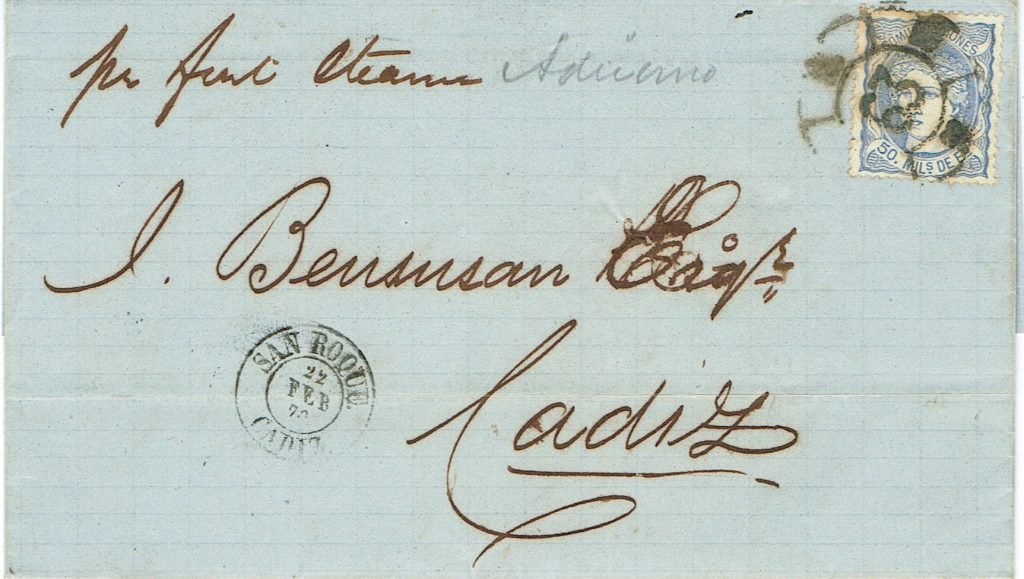 per first Steamer Adriano
COMUNICACIONES
50. MILS DE E
J. Bensusan Esqre
SAN ROQUE.
22
FEB
CADIZ
Cadiz